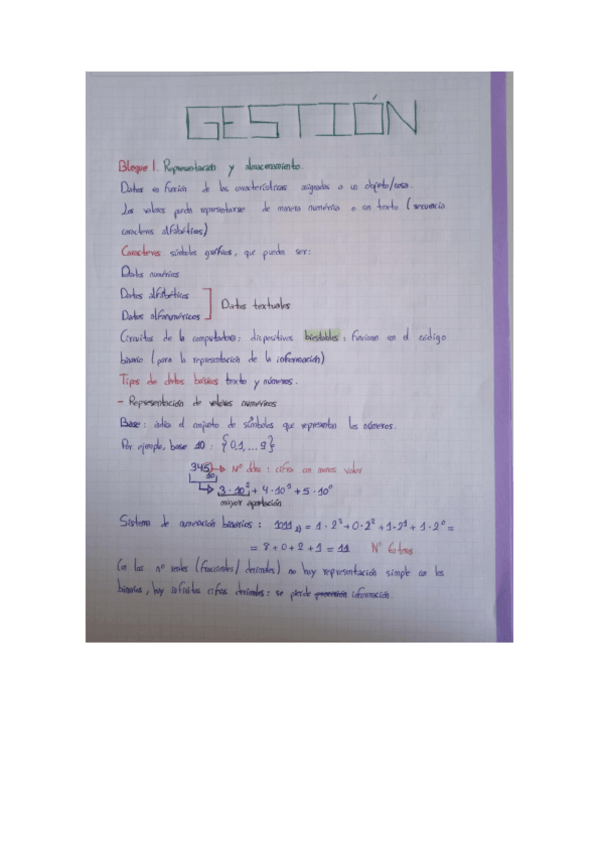 GESTIÓN
Bloque 1. Representación y almacenamiento.
Datos en función de las características asignadas a un objeto/cosa.
Los valores puede representarse de manera numérica o en texto (secuencia
caracteres alfabéticos)
Caracteres: símbolos gráficos, que puedan ser:
Datos numéricos
Datos alfabéticos
Datos alfanuméricos
Datos textuales
Circuitos de la computadora: dispositivos biestables: funcionan en el código
binario (para la representación de la información)
Tipos de datos básicos texto y números.
- Representación de valores numéricos
Base: indica el conjunto de símbolos que representan los números.
Por ejemplo, base 10: {0,1,...9}
345 → Nº : cifra con menos valor
10
→ 3·10² + 4·10¹ + 5·10⁰
mayor aportación
Sistema de numeración binarios: 1011₂) = 1·2³+0·2²+1·2¹+1·2⁰=
= 8+0+2+1 = 11 Nº
Con los nº reales (fraccionales/decimales) no hay representación simple con los
binarios, hay infinitas cifras decimales: se pierde precisión información.